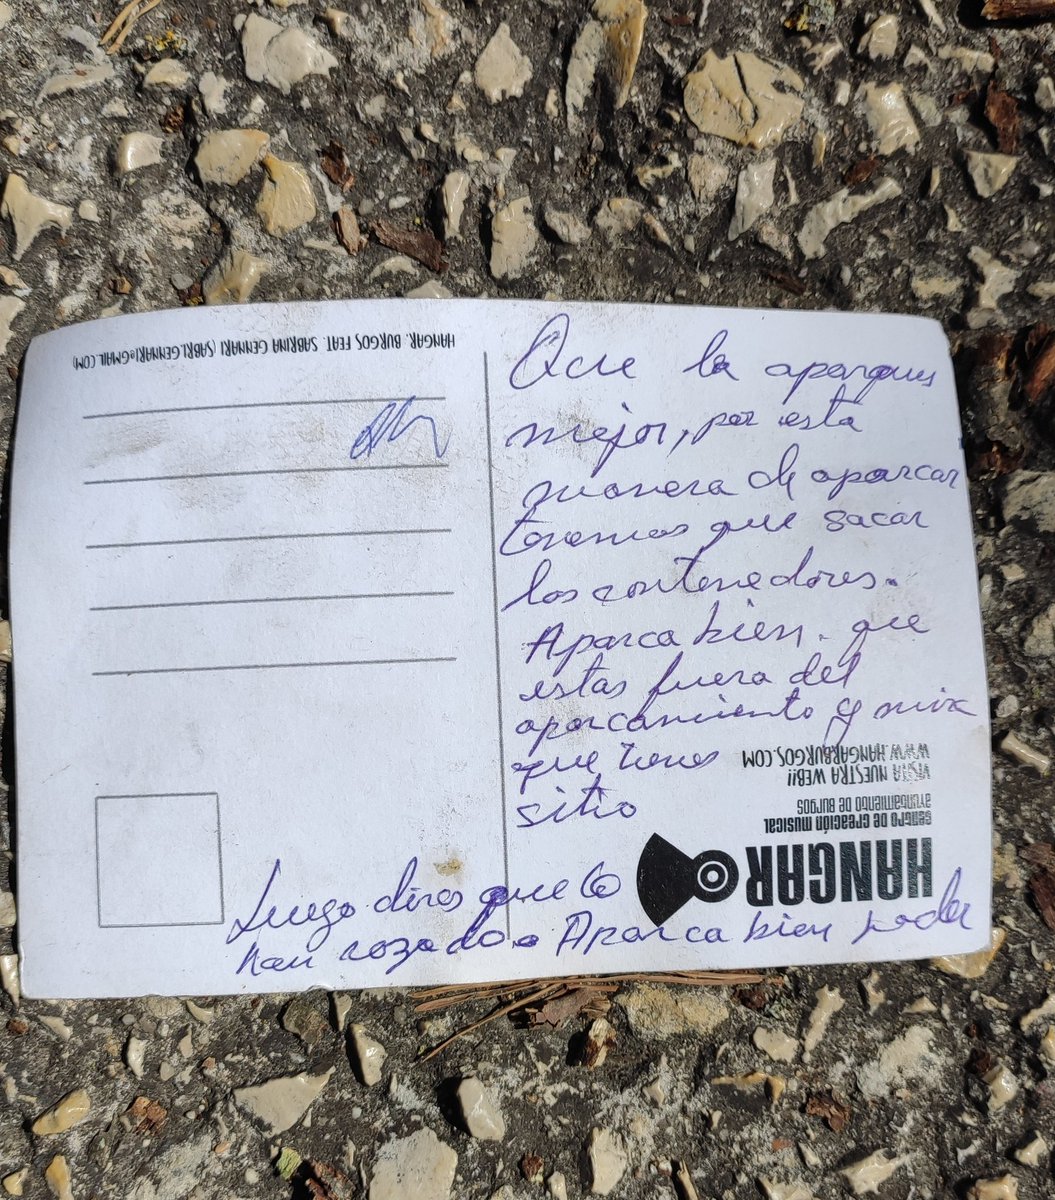 Que la aparques
mejor, por esta
manera de aparcar
tenemos que sacar
los contenedores.
Aparca bien. que
estas fuera del
aparcamiento y mira
que tienes
sitio
Luego dires que lo
han rozado. Aparca bien
HANGAR. BURGOS FEAT. SABRINA GENNARI (SABRI.GENNARI@GMAIL.COM)
HANGAR
CENTRO DE CREACIÓN MUSICAL
AYUNTAMIENTO DE BURGOS
VISITA NUESTRA WEB!!
WWW.HANGARBURGOS.COM